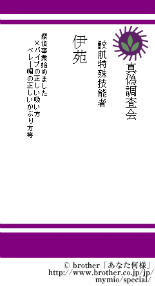 真偽調査会
鮫肌特殊技能者
伊苑
探偵業務始めました
×パイプの正しい吸い方
ベレー帽の正しいかぶり方等
© brother「あなた何様」
http://www.brother.co.jp/jp/
mymio/special/